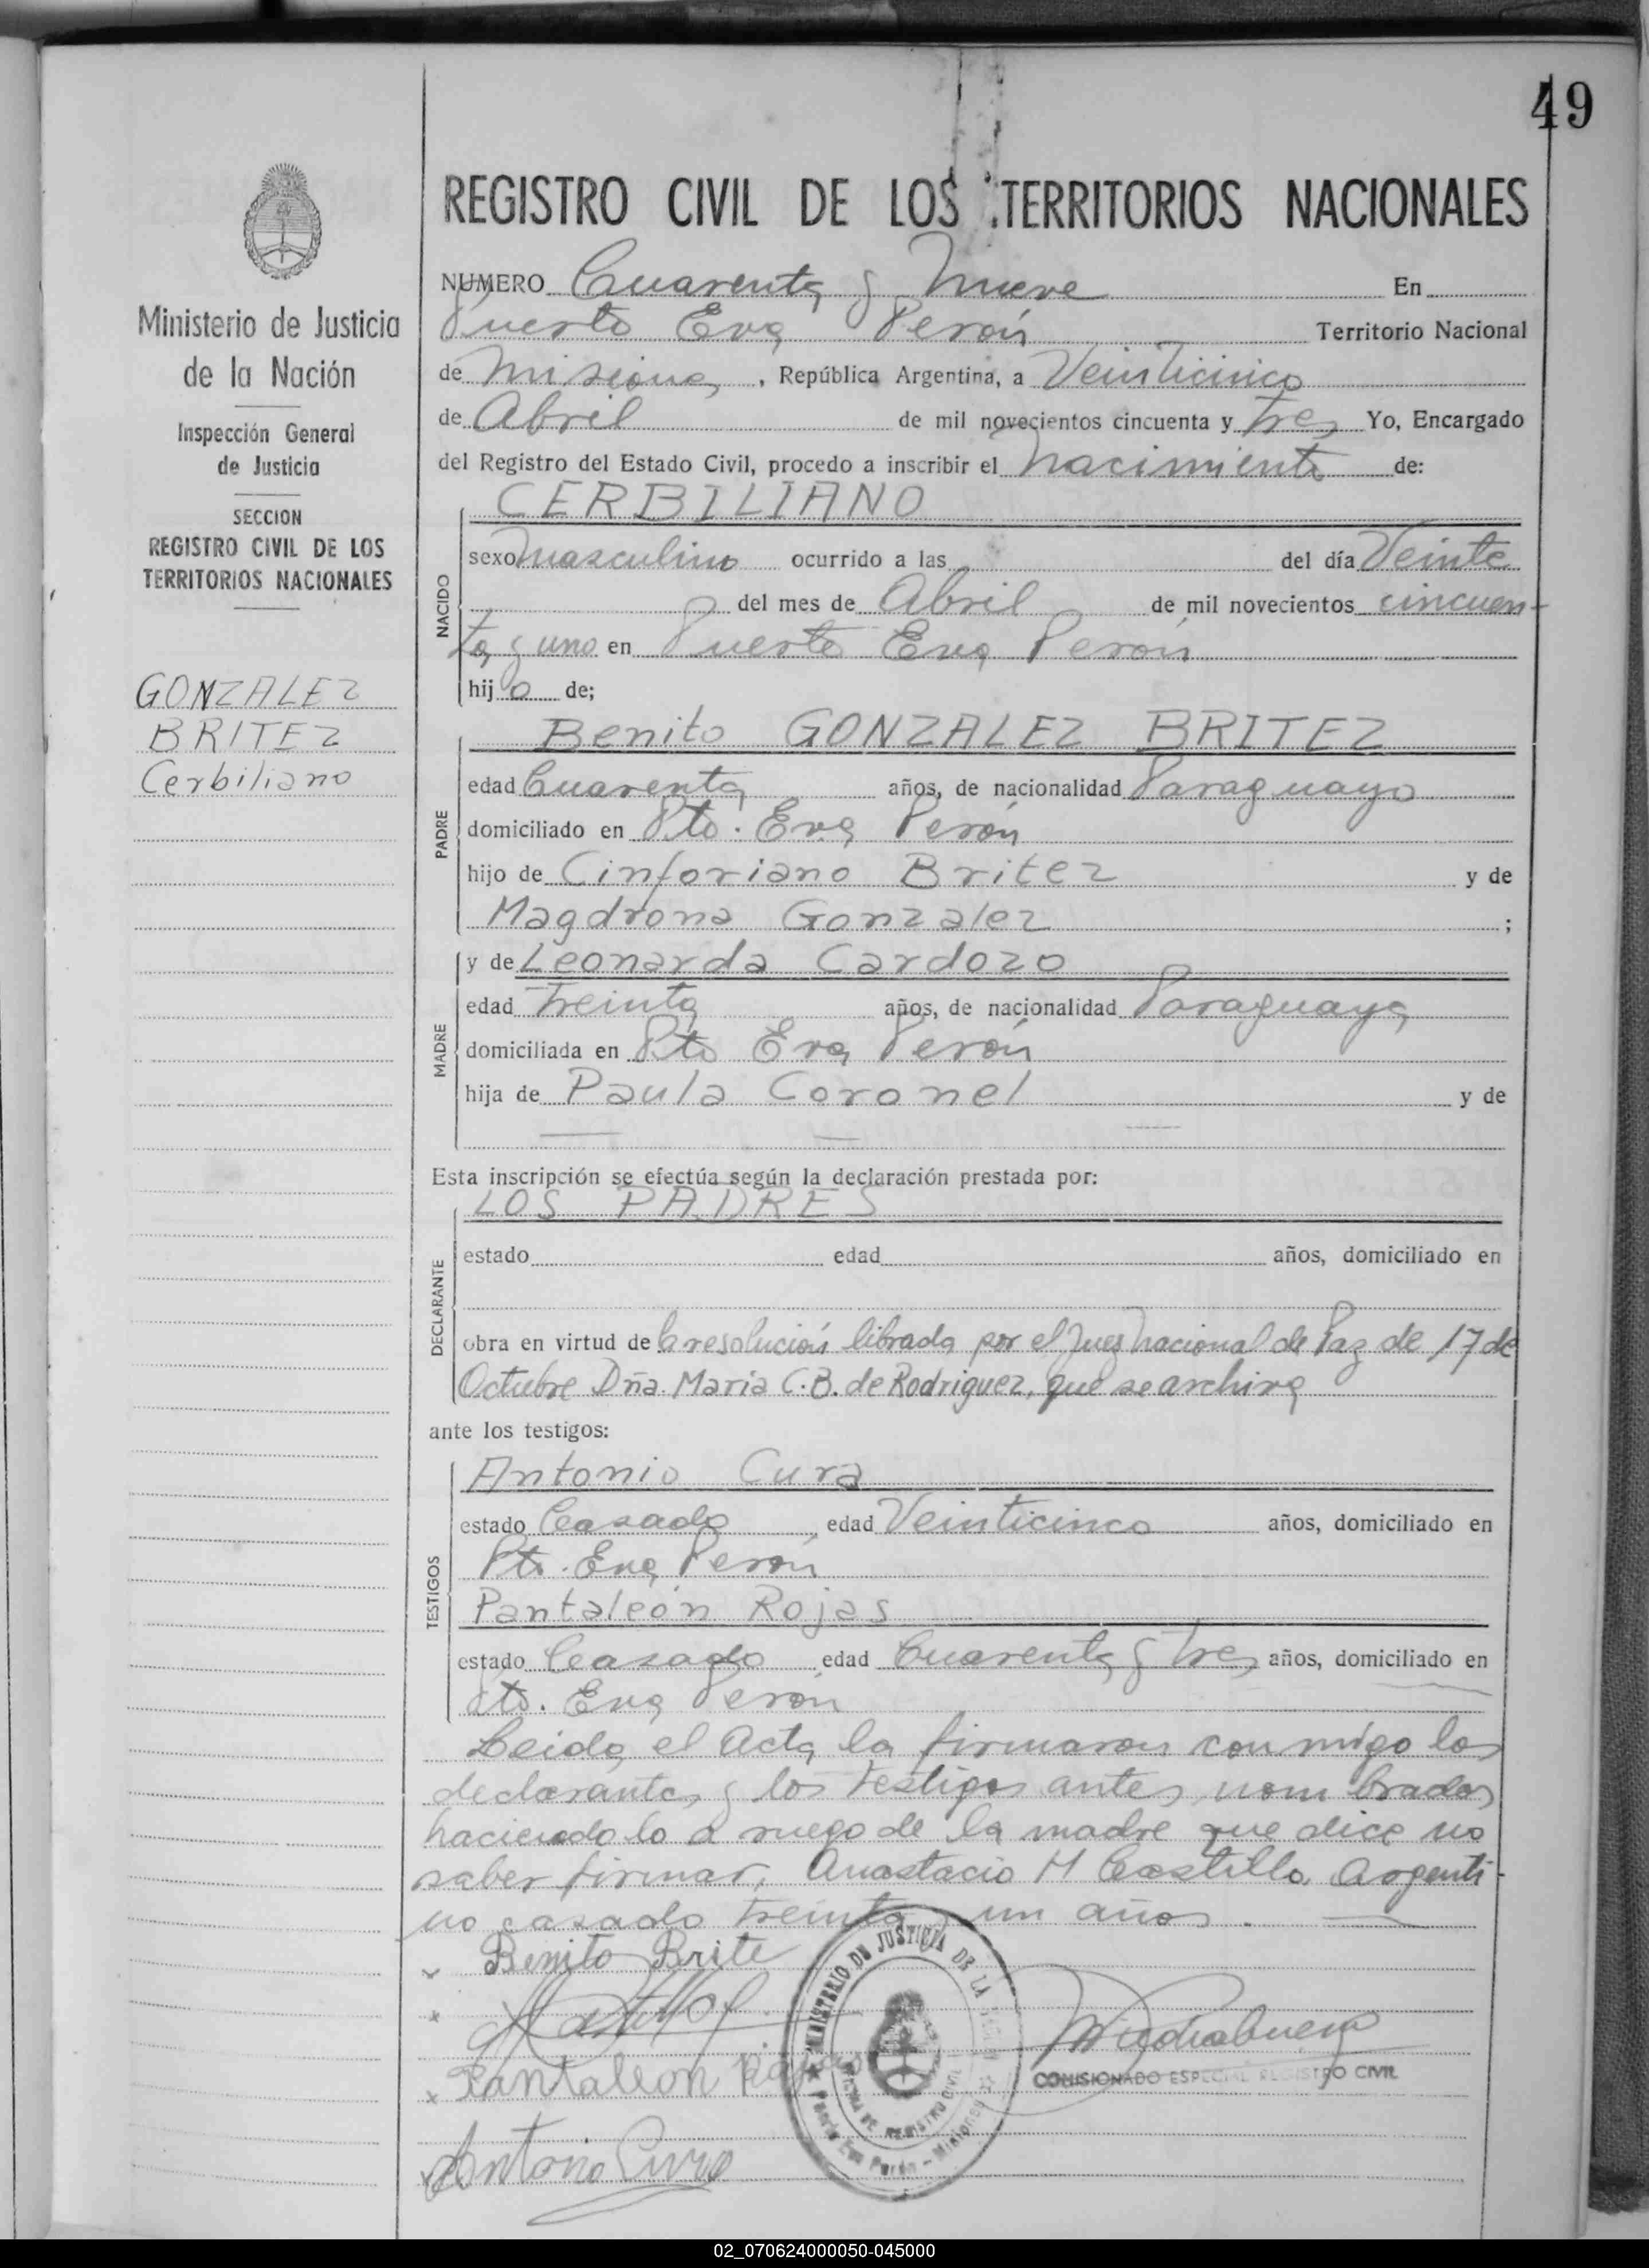 49
REGISTRO CIVIL DE LOS TERRITORIOS NACIONALES
Ministerio de Justicia
de la Nación
Inspección General
de Justicia
SECCION
REGISTRO CIVIL DE LOS
TERRITORIOS NACIONALES
GONZALEZ
BRITEZ
Cerbiliano
NUMERO Cuarenta y Nueve En
Puerto Eva Perón Territorio Nacional
de Misiones, República Argentina, a Veinticinco
de Abril de mil novecientos cincuenta y tres Yo, Encargado
del Registro del Estado Civil, procedo a inscribir el nacimiento de:
CERBILIANO
NACIDO
sexo masculino ocurrido a las del día Veinte
del mes de Abril de mil novecientos cincuen-
ta y uno en Puerto Eva Perón
hijo de;
Benito GONZALEZ BRITEZ
PADRE
edad Cuarenta años, de nacionalidad Paraguayo
domiciliado en Pto. Eva Perón
hijo de Cinforiano Britez y de
Magdrona Gonzalez ;
y de Leonarda Cardozo
MADRE
edad treinta años, de nacionalidad Paraguaya
domiciliada en Pto Eva Perón
hija de Paula Coronel y de
Esta inscripción se efectúa según la declaración prestada por:
LOS PADRES
DECLARANTE
estado edad años, domiciliado en
obra en virtud de la resolución librada por el Juez nacional de Paz de 17 de
Octubre Dña. María C.B. de Rodriguez, que se archiva
ante los testigos:
Antonio Cura
TESTIGOS
estado Casado, edad Veinticinco años, domiciliado en
Pto. Eva Perón
Pantaleón Rojas
estado Casado, edad Cuarenta y tres años, domiciliado en
Pto. Eva Perón
Leida el Acta la firmaron conmigo los
declarantes y los testigos antes nombrados
haciendolo a ruego de la madre que dice no
saber firmar, Anastacio M Castillo, Argenti-
no casado treinta y un años.
Benito Brite
Pantaleon Rojas
Antonio Cura
MINISTERIO DE JUSTICIA DE LA NACION
OFICINA DE REGISTRO CIVIL
Puerto Eva Perón - Misiones
COMISIONADO ESPECIAL REGISTRO CIVIL
02_070624000050-045000